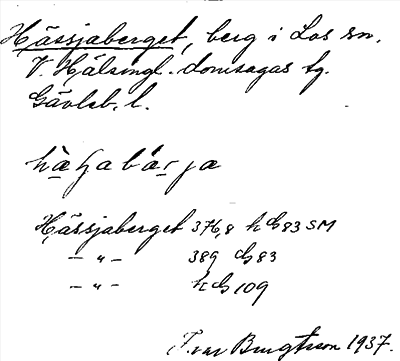 Hässjaberget, berg i Los sn.
V. Hälsingl. domsagas tg.
Gävleb. l.
Hässjaberget 376,8 h G 83 SM
— „ — 389 G 83
— „ — h G 109
Ivar Bengtsson 1937.